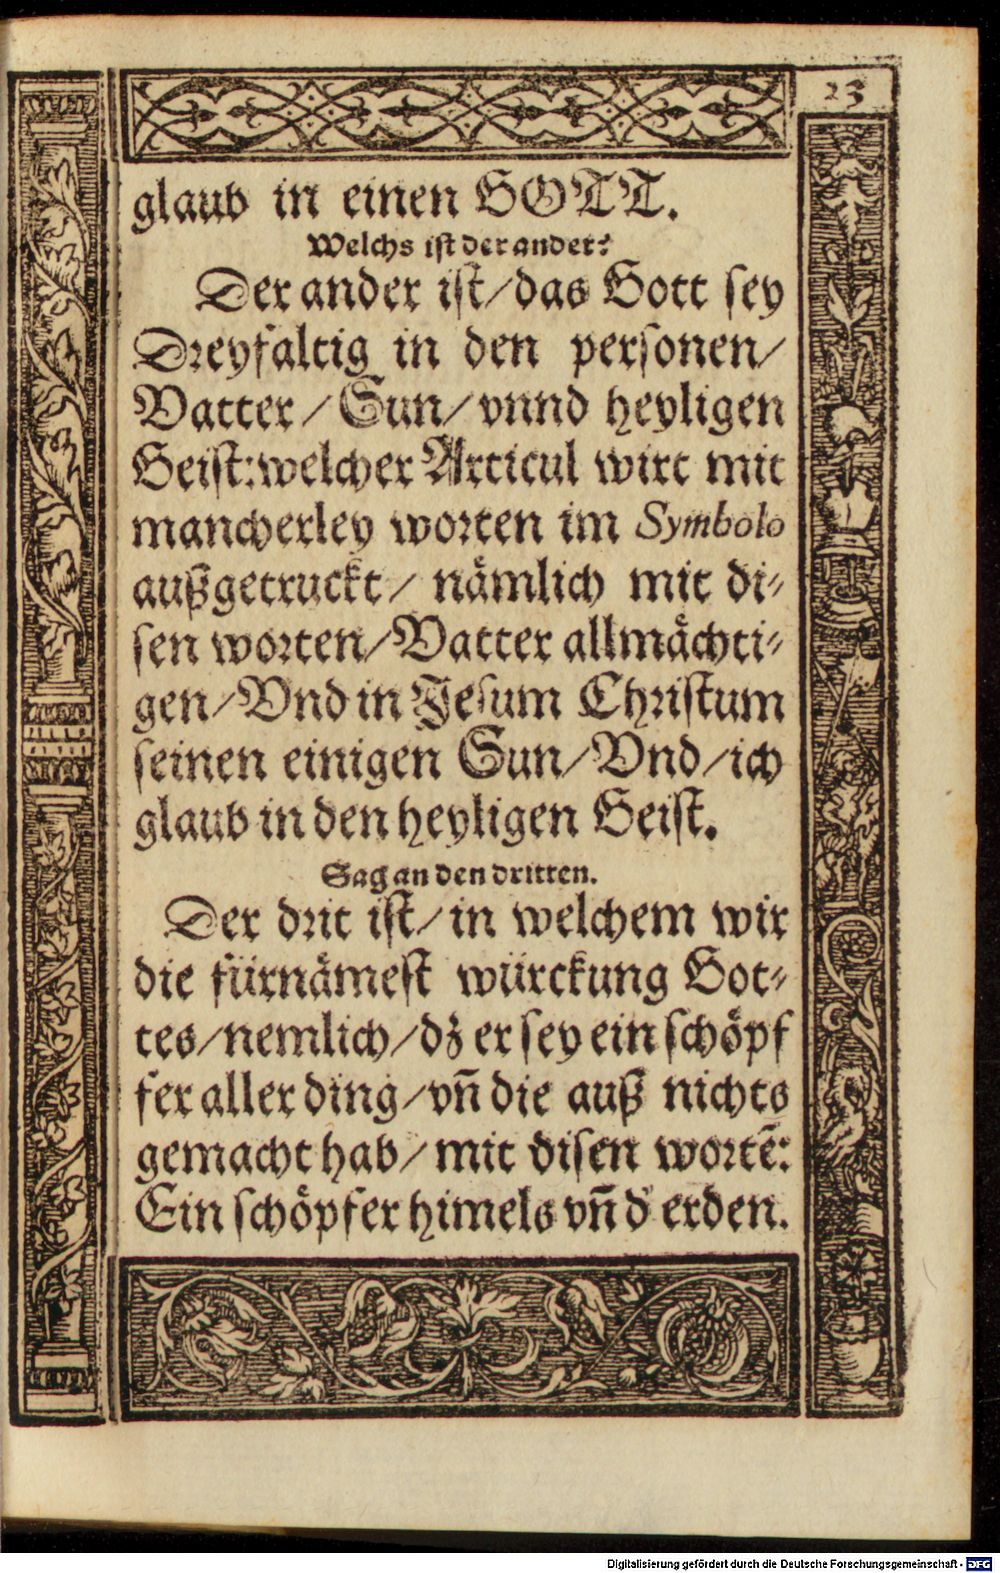 23
glaub in einen GOTT.
Welchs ist der ander?
Der ander ist/das Gott sey
Dreyfaltig in den personen/
Vatter/Sun/vnnd heyligen
Geist:welcher Articul wirt mit
mancherley worten im Symbolo
außgetruckt/ nämlich mit di-
sen worten/Vatter allmächti-
gen/Vnd in Jesum Christum
seinen einigen Sun/Vnd/ich
glaub in den heyligen Geist.
Sag an den dritten.
Der drit ist/in welchem wir
die fürnämest würckung Got-
tes/nemlich/dz er sey ein schöpf
fer aller ding/vn̄ die auß nichts
gemacht hab/mit disen wortē:
Ein schöpfer himels vn̄d erden.
Digitalisierung gefördert durch die Deutsche Forschungsgemeinschaft - DFG